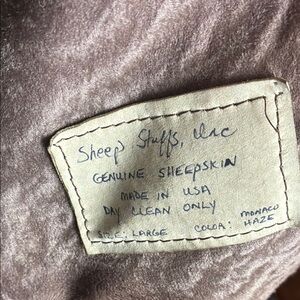 Sheep Stuffs, Inc
GENUINE SHEEPSKIN
MADE IN USA
DAY CLEAN ONLY
SIZE: LARGE COLOR: MONACO HAZE